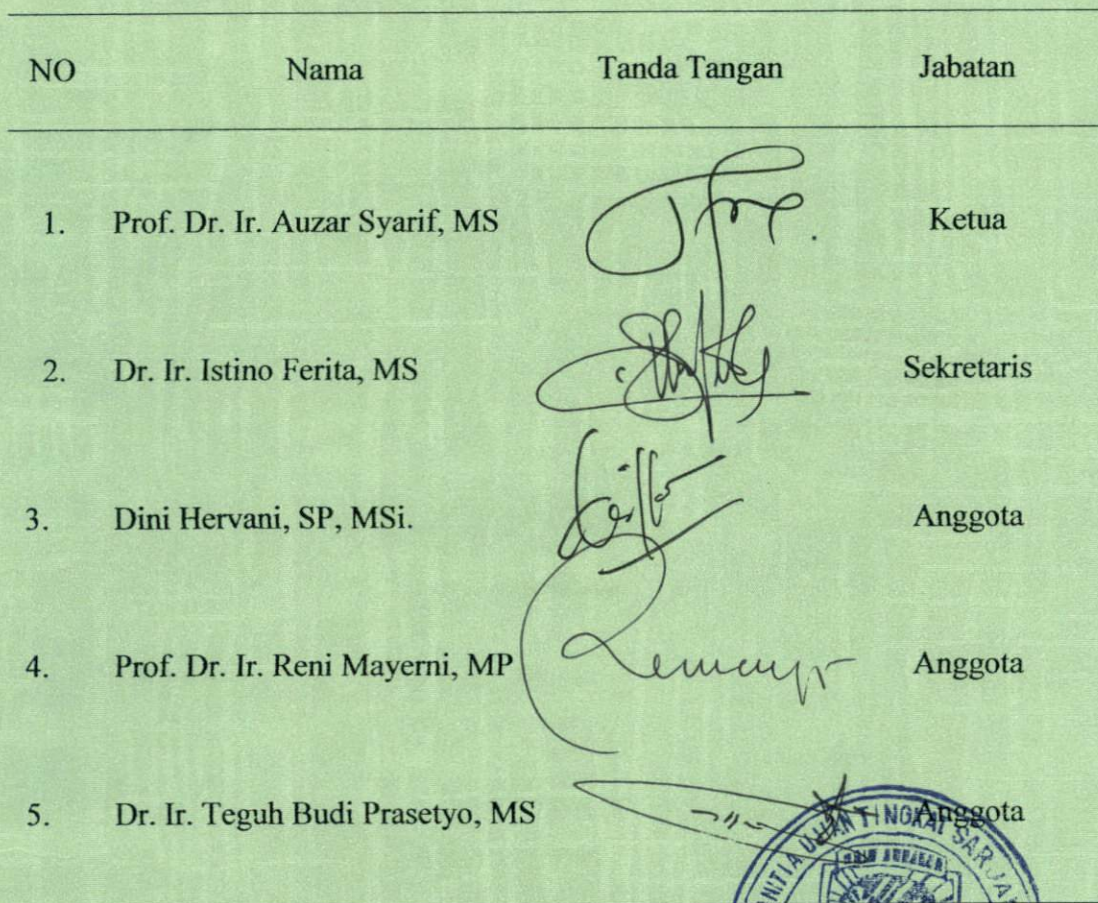 NO Nama Tanda Tangan Jabatan
1. Prof. Dr. Ir. Auzar Syarif, MS Ketua
2. Dr. Ir. Istino Ferita, MS Sekretaris
3. Dini Hervani, SP, MSi. Anggota
4. Prof. Dr. Ir. Reni Mayerni, MP Anggota
5. Dr. Ir. Teguh Budi Prasetyo, MS Anggota
UJIAN TINGKAT